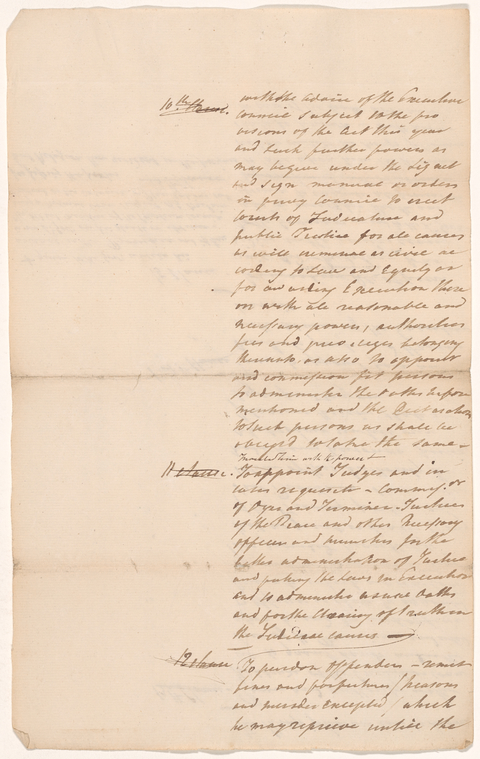 10th Clause. with the Advice of the Executive
Council subject to the pro
visions of the Act this year
and such further powers as
may be given under the Signet
and sign manual or orders
in privy Council to erect
Courts of Judicature and
public Justice for all causes
as well criminal as civil ac
cording to Law and Equity or
for awarding Execution there
on with all reasonable and
necessary powers, authorities
fees and privileges belonging
thereunto, as also to appoint
and commission fit persons
to administer the oaths before
mentioned and the Declaration
to such persons as shall be
obliged to take the same –
11 clause. To appoint Judges and in
cases requisite – Commrs. of
of Oyer and Terminer – Justices
of the Peace and other necessary
officers and ministers for the
better administration of Justice
and putting the Laws in Execution
and to administer usual oaths
and for the clearing of truth in
the Judicial causes —
12 clause To pardon offenders – remit
fines and forfeitures (treasons
and murder excepted) which
he may reprieve until the